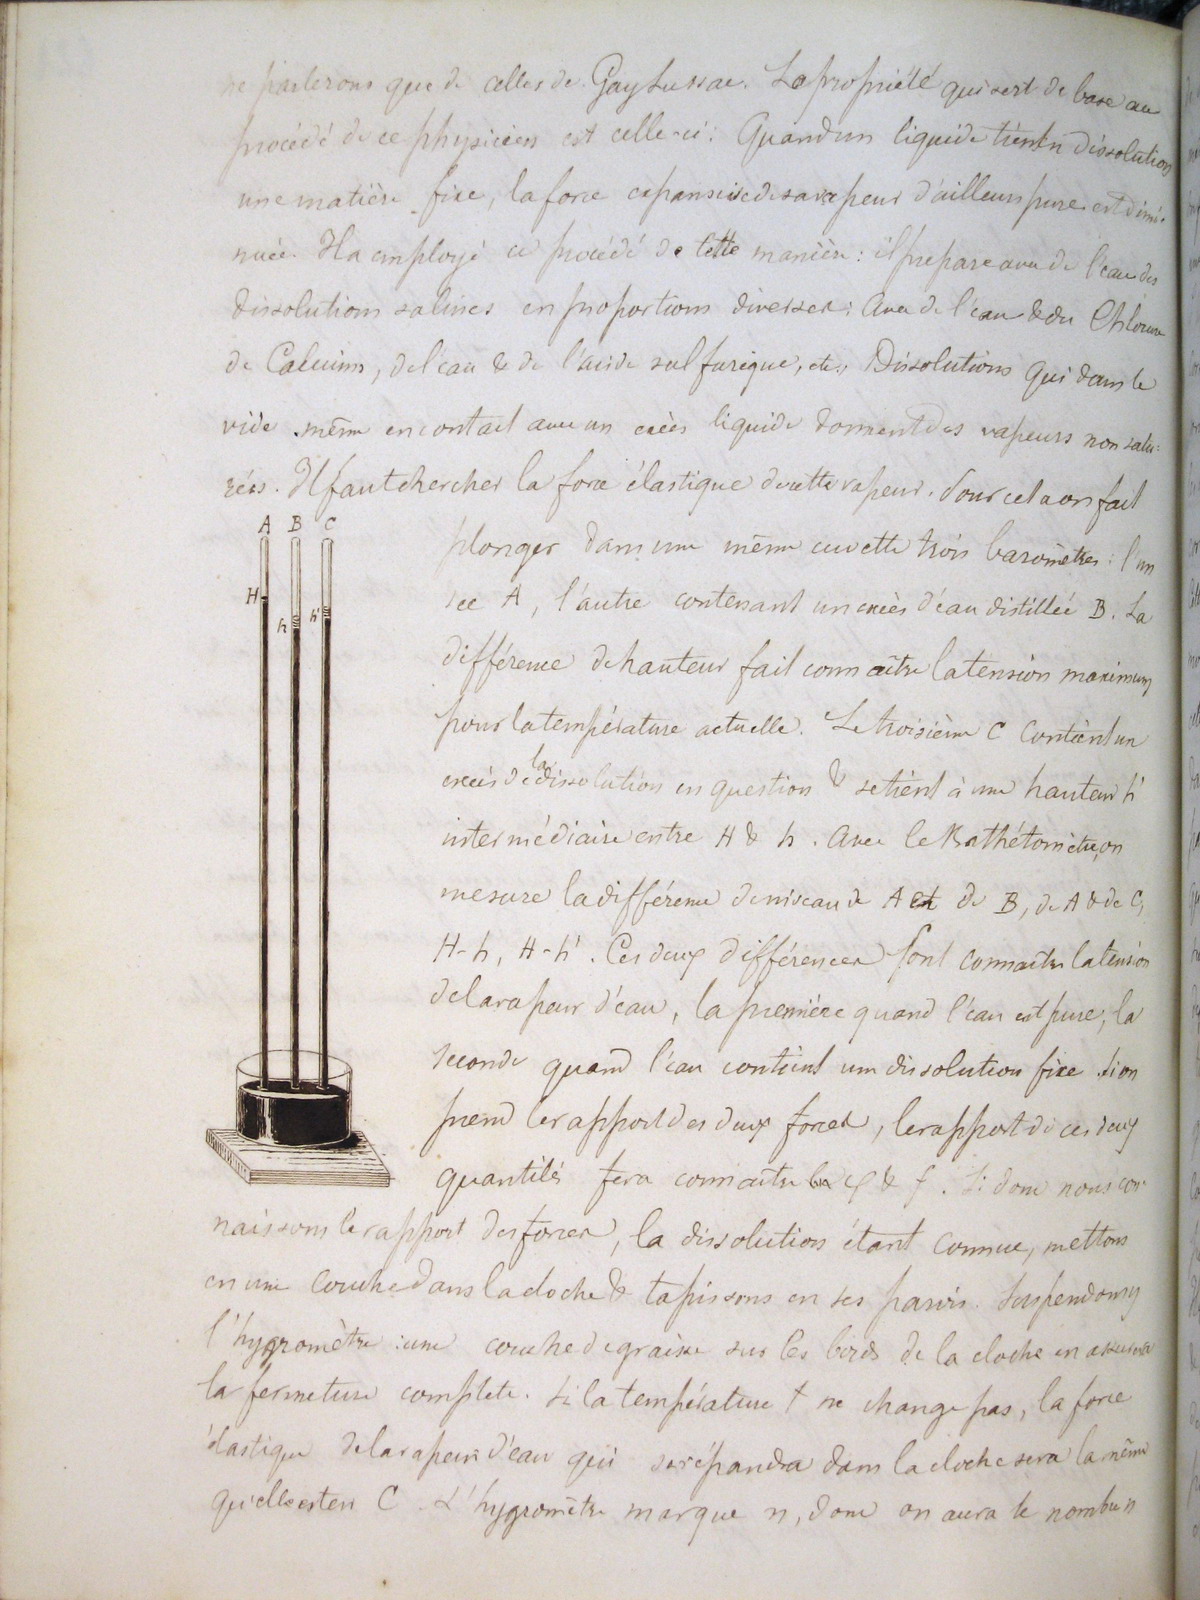 ne parlerons que de celles de Gay Lussac. La propriété qui sert de base au
procédé de ce physicien est celle-ci: Quand un liquide tient en dissolution
une matière fixe, la force expansive de sa vapeur d'ailleurs pure est dimi-
nuée. Il a employé ce procédé de cette manière: il prepare avec de l'eau des
dissolutions salines en proportions diverses: Avec de l'eau & du Chlorure
de Calcium, de l'eau & de l'acide sulfurique, etc., Dissolutions qui dans le
vide même en contact avec un excès liquide donnent des vapeurs non satu-
rées. Il faut chercher la force élastique de cette vapeur. Pour cela on fait
A B C
plonger dans une même cuvette trois baromètres: l'un
H
sec A, l'autre contenant un excès d'eau distillée B. La
h h'
différence de hauteur fait connaître la tension maximum
pour la température actuelle. Le troisième C contient un
excès de la dissolution en question & se tient à une hauteur h'
intermédiaire entre H & h. Avec le Kathétomètre, on
mesure la différence de niveau de A et de B, de A & de C,
H-h, H-h'. Ces deux différences font connaître la tension
de la vapeur d'eau, la première quand l'eau est pure, la
seconde quand l'eau contient une dissolution fixe. Si on
prend le rapport des deux forces, le rapport de ces deux
quantités fera connaître φ & f. Si donc nous con-
naissons le rapport des forces, la dissolution étant connue, mettons
en une couche dans la cloche & tapissons en ses parois. Suspendons y
l'hygromètre: une couche de graisse sur les bords de la cloche en assurera
la fermeture complète. Si la température t ne change pas, la force
élastique de la vapeur d'eau qui se répandra dans la cloche sera la même
qu'elle est en C. L'hygromètre marque n, donc on aura le nombre n